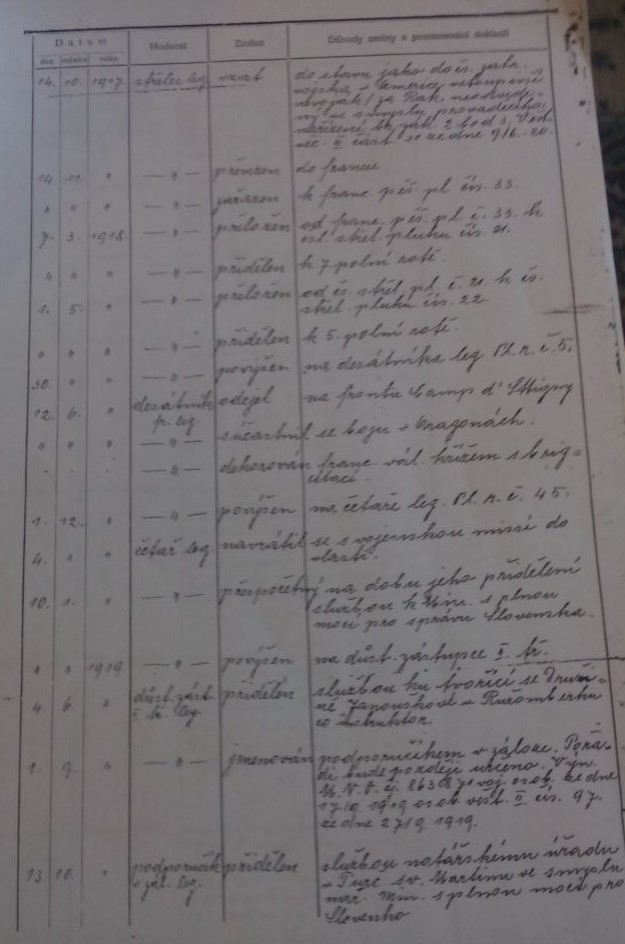 Datum Hodnost Změna Důvody změny a poznamenání dokladů
den měsíce roku
14. 10. 1917 střelec leg. vzat do stavu jako dobr. zahr.
vojska v Americe vstoupivší
voják / za Rak. neodvede-
ný ve smyslu prováděcího
nařízení
14. 11. " — " — převezen do Francie
" " " — " — zařazen k franc. pěš. pl. čís. 33.
7. 3. 1918. — " — přeložen od franc. pěš. pl. č. 33. k
čsl. střel. pluku čís. 21.
" " " — " — přidělen k 7 polní rotě.
1. 5. " — " — přeložen od čs. střel. pl. č. 21. k čs.
střel. pluku čís. 22.
" " " — " — přidělen k 5. polní rotě.
30. " " — " — povýšen na desátníka leg. Pl. r. č. 5.
12. 6. " desátník fr. leg. odejel na frontu Camp d'
" " " — " — súčastnil se boju v Argonách.
— " — dekorován franc. vál. křížem s brig-
citací
1. 12. " — " — povýšen na četaře leg. Pl. r. č. 45.
4. " " četař leg. navrátil se s vojenskou missí do
vlasti.
10. 1. " — " — přespočetný na dobu jeho přidělení
službou k Min. s plnou
moci pro správu Slovenska.
" " 1919 — " — povýšen na důst. zástupce I. tř.
4. 6. " důst. zást. I. tř. leg. přidělen službou ku tvořící se Druži-
ně Janouškově v Ružomberku
co instruktor.
1. 9. " — " — jmenován podporučíkem v záloze. Pořa-
dí bude později určeno. Výn.
M. N. O. čj. voj. osob. ze dne
17/9. 1919 osob. věst. II. čís. 97.
ze dne 27/9. 1919.
13. 10. " podporučík v zál. leg. přidělen službou notářskému úřadu
v Turč. sv. Martinu ve smyslu
nař. Min. s plnou mocí pro
Slovensko